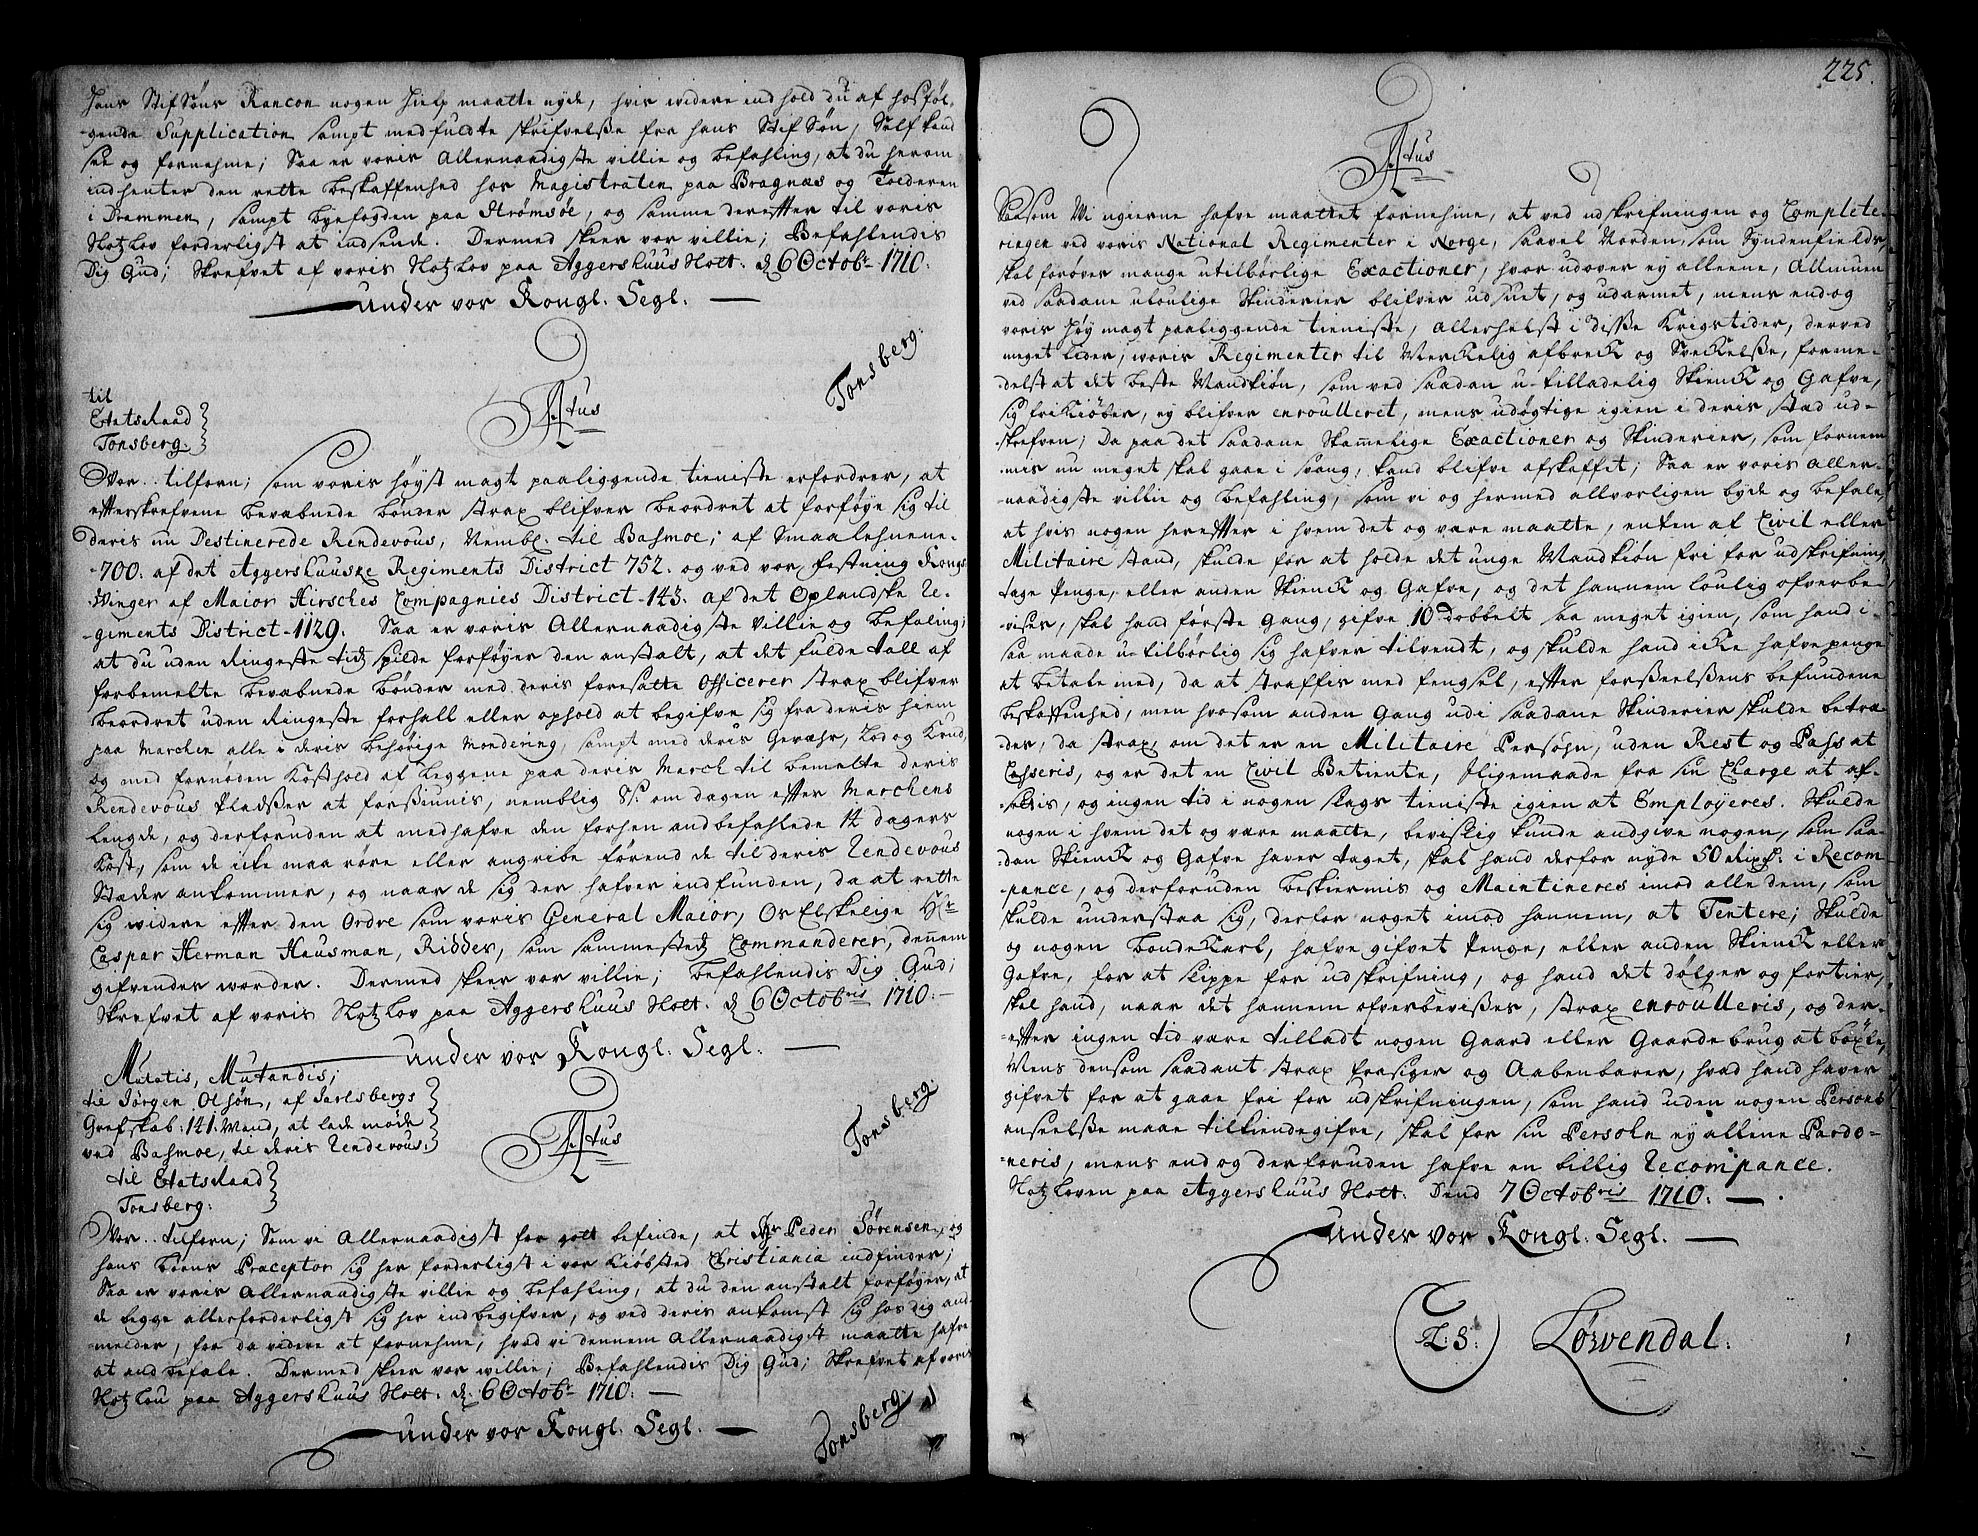 hans StifSøns Rancon nogen Hielp maatte nyde, hvis widere indhold du af hosføl-
-gende Supplication sampt medfuldte skrifvelse fra hans StifSøn, Self kand
see og fornehme; Saa er voris Allernaadigste villie og befahling, at du herom
indhenter den rette beskaffenhed hos Magistraten paa Bragnæs og Tolderen
i Drammen, sampt byefogden paa Strømsøe, og samme derefter til voris
Slotzlov forderligst at indsende. Dermed skeer vor villie; Befahlendis
Dig Gud; Skrefvet af voris Slotzlov paa Aggershuus Slott. d. 6 Octobr. 1710.
under vor Kongl. Segl.
Tonsberg.
til
Etatsraad
Tonsberg.
F 4tus
Vor.. tilforn; som voris høyst magt paaliggende tieniste erfordrer, at
efterskrefvene bevæbnede bønder strax blifver beordret at forføye sig til
deris nu Destinerede Rendevous, Nembl. til Basmoe; af Smaalehnene.
-700. af det Aggershuuske Regiments District 752. og ved vor festning Kongs
Winger af Maior Hirsches Compagnies District -143. af det Oplandske Re-
-giments District -1129. Saa er voris Allernaadigste Villie og befaling;
at du uden Ringeste tidz spilde forføyer den anstalt, at det fulde tall af
forbemelte bevæbnede bønder med deris foresatte Officerer strax blifver
beordret uden Ringeste forhall eller ophold at begifve sig fra deris hiem
paa Marchen alle i deris behørige Mondering, sampt med deris Gevæhr, Lod og Krud,
og med fornøden Kosthold af Leggene paa deris March til bemelte deris
Rendevous Pladser at forsiunis, nemblig 8s. om dagen efter Marchens
Lengde, og derforuden at medhafve den forhen andbefahlede 14 dagers
Kost, som de icke maa røre eller angribe førend de til deris Rendevous
Stæder ankommer, og naar de sig der hafver indfunden, da at rette
sig widere efter den Ordre som voris General Maior, Os Elskelige Hr.
Caspar Herman Hausman, Ridder, som sammestedz Commanderer, dennem
gifvendes worder. Dermed skeer vor villie; befahlendis Dig Gud;
Skrefvet af voris Slotzlov paa Aggershuus Slott. d. 6 Octobris 1710.
under vor Kongl. Segl.
Mutatis, Mutandis;
til Jørgen Olsøn, af Jarlsbergs
Grefskab: 141. Mand, at lade møde
ved Basmoe, til deris Rendevous.
Tonsberg.
til Etatsraad
Tonsberg.
Vor.. tilforn; Som vi Allernaadigst for gott befinde, at Hr Peder Sørensen, og
hans børns Præceptor sig her forderligst i vor Kiøbsted Christiania indfinder;
Saa er voris Allernaadigste villie og befahling, at du den anstalt forføyer, at
de begge allerforderligst sig her indbegifver, og ved deris ankomst sig hos dig and-
melder, for da videre at fornehme, hvad vi dennem Allernaadigst maatte hafve
at andbefale. Dermed skeer vor willie; Befahlendis Dig Gud; Skrefvet af voris
Slotzlov paa Aggershuus Slott. d. 6 Octobr. 1710.
under vor Kongl. Segl.
Tonsberg.
225.
Saasom Wi ugierne hafve maattet fornehme, at ved udskrifningen og Complete-
ringen ved voris National Regimenter i Norge, saavel Norden, som Syndenfields,
skal forøves mange utilbørlige Exactioner, hvor udover ej alleene, Allmuen
ved saadane uloulige Skinderier blifver udsuet, og udarmet, mens endog
voris høy magt paaliggende tieniste, Allerhelst i disse Krigstider, derved
meget lider, woris Regimenter til Merckelig afbreck og Sveckelse, forme-
delst at det beste Mandkiøn, som ved saadan u-tilladelig Skienck og Gafve,
sig frikiøber, ey blifver enroulleret, mens udøgtige igien i deris stæd ud-
skrefven; Da paa det saadane skammelige Exactioner og Skinderier, som fornem-
mis nu meget skal gaae i svang, kand blifve afskaffet; Saa er voris Aller-
-naadigste villie og befahling, som vi og hermed allvorligen byde og befale,
at hvis nogen herefter i hvem det og være maatte, enten af Civil eller
Militaire stand, skulde for at holde det unge Mandkiøn fri for udskrifning
tage Penge, eller anden Skienck og Gafve, og det hannem loulig ofverbe-
vises, skal hand første Gang, gifve 10 dobbelt saa meget igien, som hand i
saa maade u-tilbørlig sig hafver tilvendt, og skulde hand icke hafve penge
at betale med, da at straffis med fengsel, efter forseelsens befundene
beskaffenhed, men hvosom anden Gang udi saadane Skinderier skulde betræ-
des, da strax, om det er en Militaire Persohn, uden Rest og Pass at
Casseris, og er det en Civil Betiente, ligemaade fra sin Charge at af-
settis, og ingen tid i nogen slags tieniste igien at Employeres. Skulde
nogen i hvem det og være maatte, beviislig kunde andgive nogen, som saa-
dan Skienck og Gafve haver taget, skal hand derfor nyde 50 Rixdr. i Recom-
-pance, og derforuden beskiermis og Maintineres imod alle dem, som
skulde understaa sig, derfor noget imod hannem, at Tentere; Skulde
og nogen bondeKarl, hafve gifvet Penge, eller anden Skienck eller
Gafve, for at slippe for udskrifning, og hand det dølger og fortier,
skal hand, naar det hannem ofverbevises, strax enroulleris, og der-
-efter ingen tid være tilladt nogen Gaard eller Gaardebrug at böxle,
Mens densom saadant strax frasiger og Aabenbarer, hvad hand haver
gifvet for at gaae fri for udskrifningen, som hand uden nogen Persons
anseelse maae tilkiendegifve, skal for sin Persohn ey allene Pardo-
-neris, mens end og derforuden hafve en billig Recompance.
Slotzloven paa Aggershuus Slott. Dend 7 Octobris 1710.
under vor Kongl. Segl.
L:S: Løwendal.